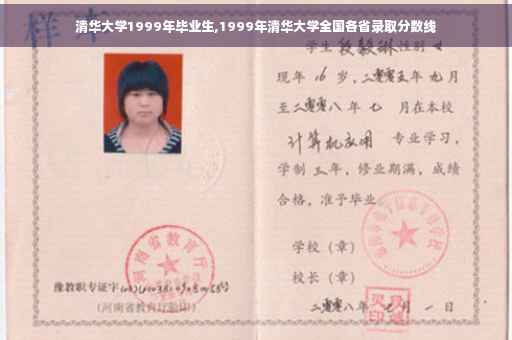 清华大学1999年毕业生,1999年清华大学全国各省录取分数线
样本
学生段毅琳性别女
现年16岁,二零零五年九月
至二零零八年七月在本校
计算机应用专业学习,
学制三年,修业期满,成绩
合格,准予毕业
学校(章)
校长(章)
二零零八年七月一日
河南省教育厅
豫教职专证字
(河南省教育厅验印)